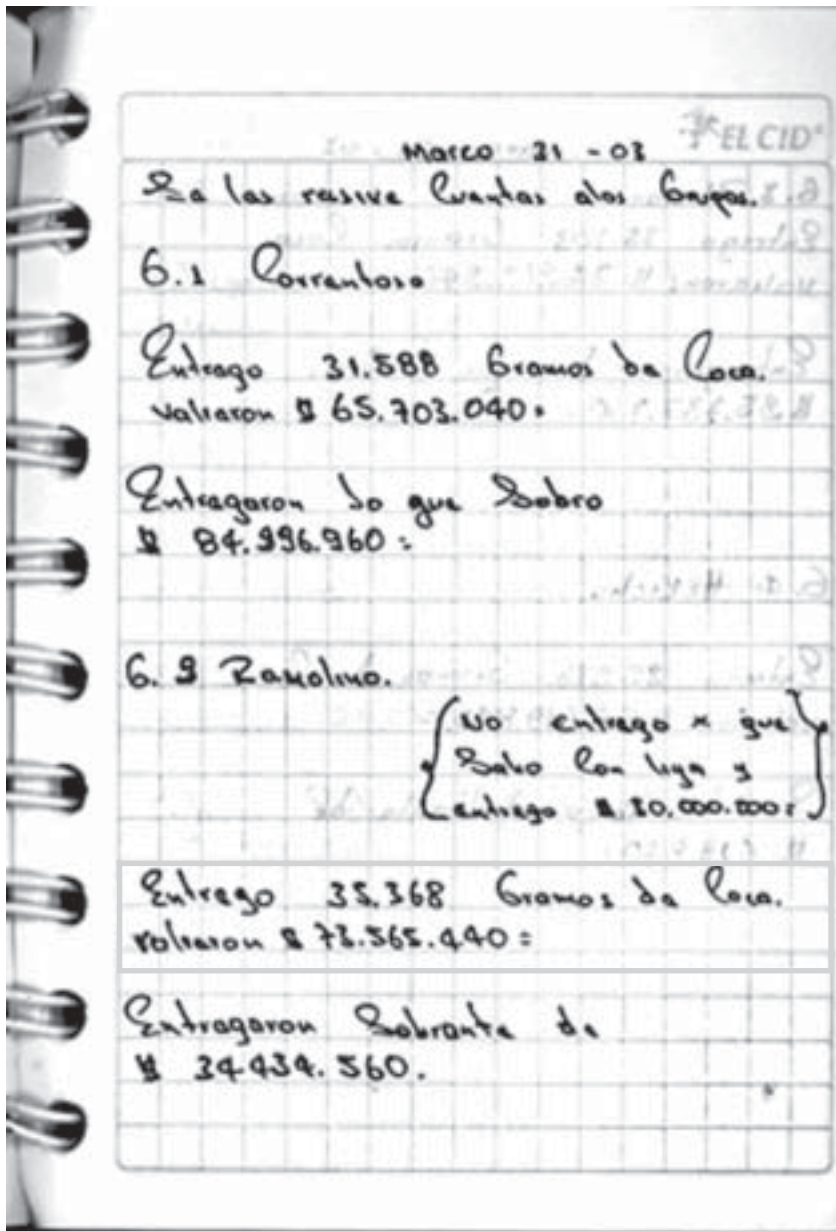 EL CID
Marco 31 - 03
Se las resive Cuentas alos Grupos.
G.1 Correntoso
Entrego 31.588 Gramos de Coca.
valieron $ 65.703.040=
Entregaron lo que Sobro
$ 84.996.960=
G. 9 Ramolino.
(No entrego x que
Salio Con liga y
entrego $ 30.000.000=)
Entrego 35.368 Gramos de Coca.
valieron $ 73.565.440=
Entregaron Sobrante de
$ 34434.560.